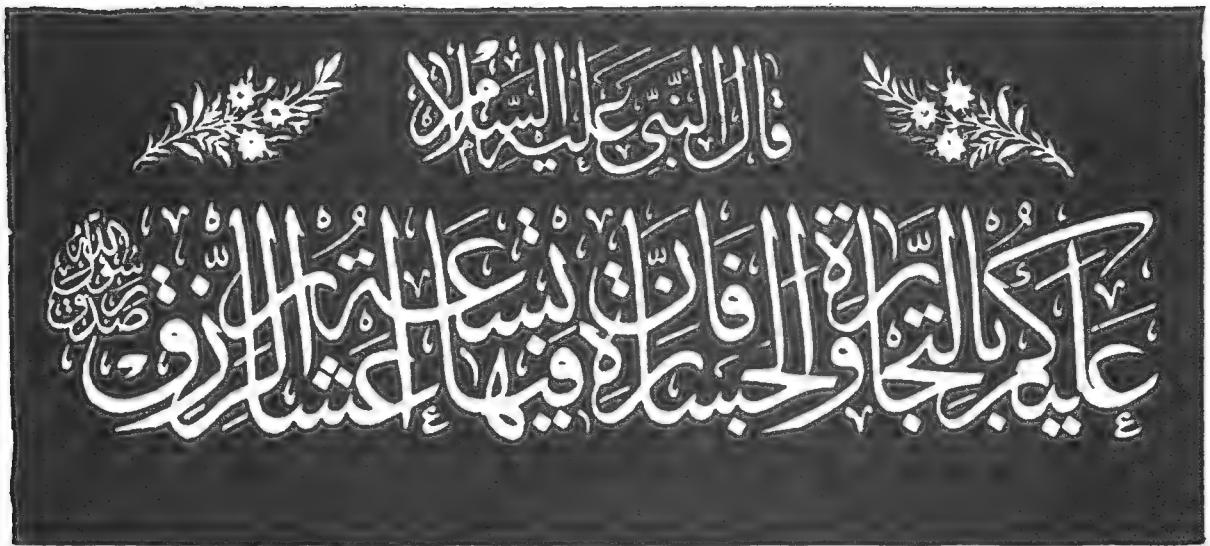 قَالَ النَّبِيُّ عَلَيْهِ السَّلَامُ
عَلَيْكُمْ بِالتِّجَارَةِ وَالْجَسَارَةِ فَاِنَّ فِيهَا تِسْعَةُ اَعْشَارِ الرِّزْقِ
صدق رسول الله